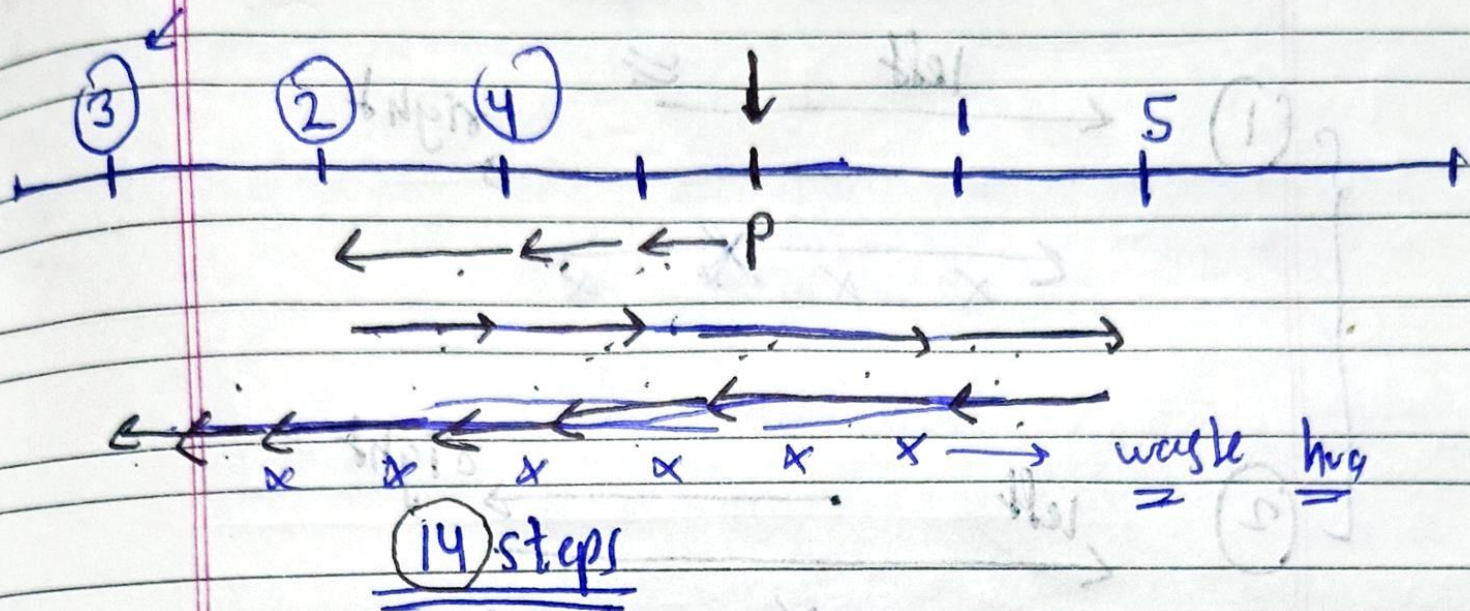 3 2 4 1 5
P
x x x x x x → waste hua
14 steps